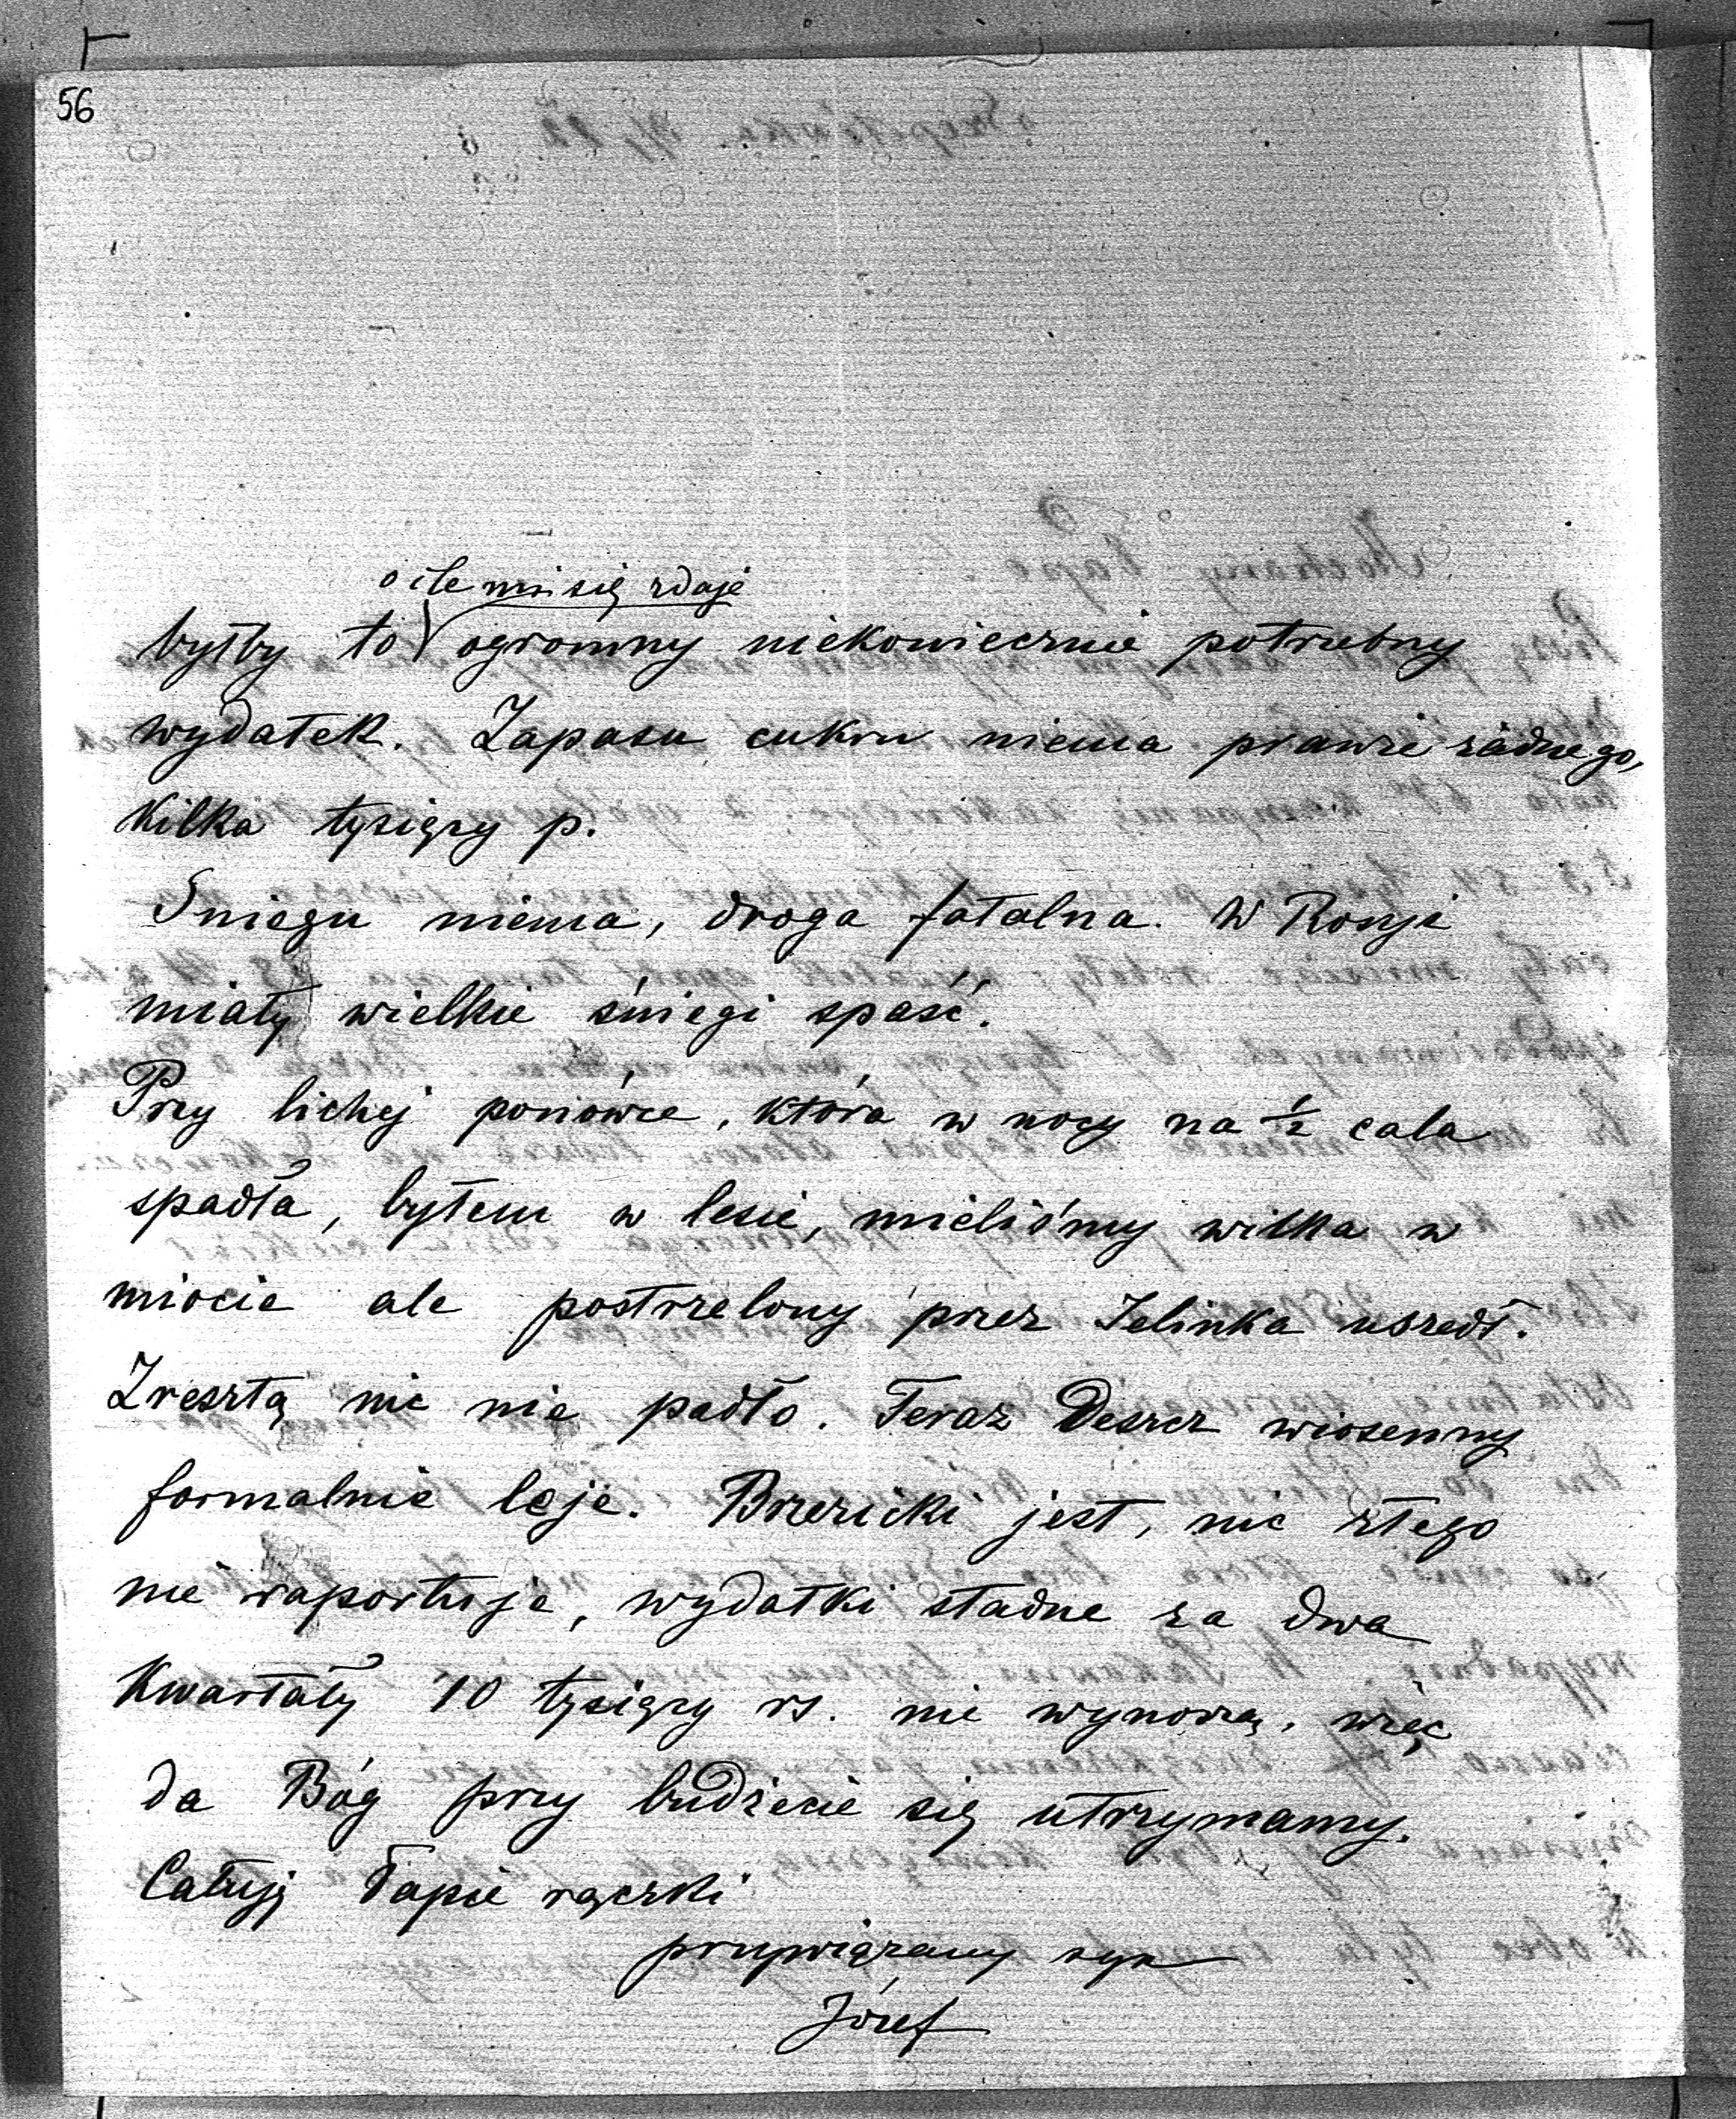 56
o ile mi się zdaje
byłby to ogromny niekoniecznie potrzebny
wydatek. Zapasu cukru niema prawie żadnego,
kilka tysięcy p.
Sniegu niema, droga fatalna. W Rosyi
miały wielkie śniegi spaść.
Przy lichej ponówce, która w nocy na ½ cala
spadła, byłem w lesie, mieliśmy wilka w
miocie ale postrzelony przez Jelinka uszedł.
Zresztą nic nie padło. Teraz Deszcz wiosenny
formalnie leje. Brzezicki jest, nic złego
nie raportuje, wydatki stadne za dwa
Kwartały 10 tysięcy rs. nie wynoszą, więc
da Bóg przy budżecie się utrzymamy.
Całuję Papie rączki
przywiązany syn
Józef